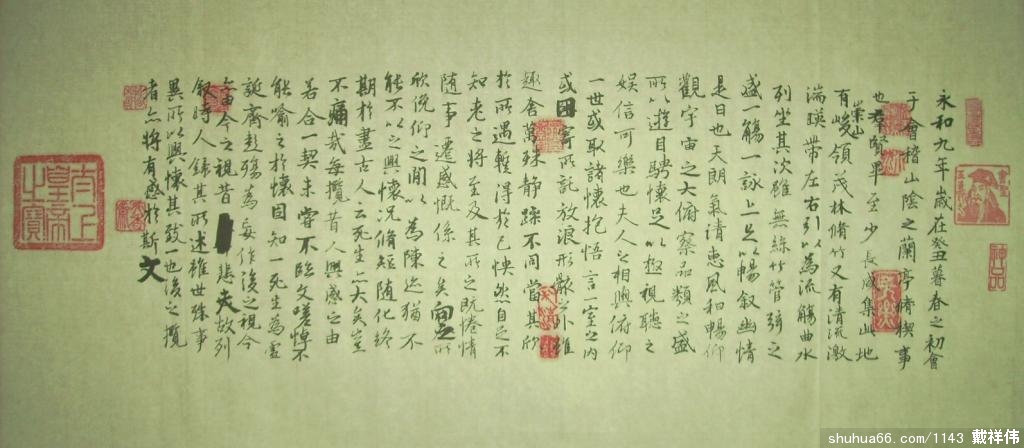 永和九年歲在癸丑暮春之初會
于會稽山陰之蘭亭脩稧事
也羣賢畢至少長咸集此地
有崇山峻領茂林脩竹又有清流激
湍暎帶左右引以為流觴曲水
列坐其次雖無絲竹管弦之
盛一觴一詠上足以暢叙幽情
是日也天朗氣清惠風和暢仰
觀宇宙之大俯察品類之盛
所以遊目騁懷足以極視聽之
娱信可樂也夫人之相與俯仰
一世或取諸懷抱悟言一室之内
或因寄所託放浪形骸之外雖
趣舍萬殊静躁不同當其欣
於所遇暫得於己怏然自足不
知老之將至及其所之既惓情
随事遷感慨係之矣向之所
欣俛仰之間以為陳迹猶不
能不以之興懷況脩短随化終
期於盡古人云死生亦大矣豈
不痛哉每攬昔人興感之由
若合一契未甞不臨文嗟悼不
能喻之於懷固知一死生為虚
誕齊彭殤為妄作後之視今
亦由今之視昔悲夫故列
叙時人録其所述雖世殊事
異所以興懷其致一也後之攬
者亦將有感於斯文
太上皇帝之寶
神品
shuhua66.com/1143 戴祥伟